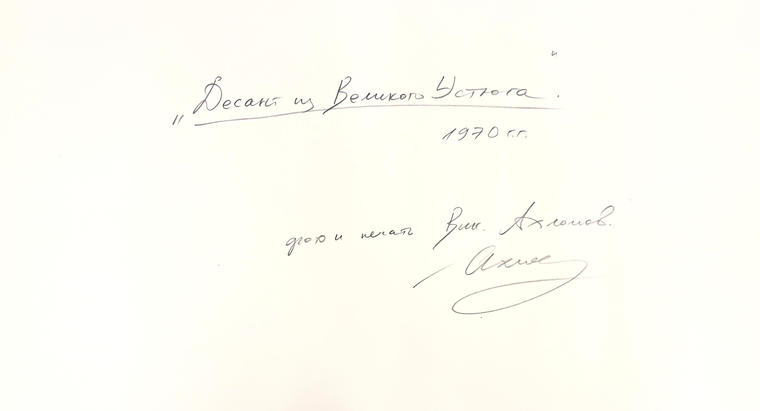 „Десант из Великого Устюга".
1970 г.г.
фото и печать Вик. Ахломов.